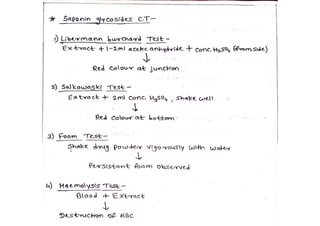 * Saponin glycosides C.T-
1) Libermann burchard Test-
Extract + 1-2ml acetic anhydride + Conc. H₂SO₄ (from side)
↓
Red colour at junction
2) Salkowaski Test-
Extract + 2ml Conc. H₂SO₄, shake well
↓
Red colour at bottom
3) Foam Test-
Shake drug powder vigorously with water
↓
Persistant foam observed
4) Haemolysis Test-
Blood + Extract
↓
Destruction of RBC